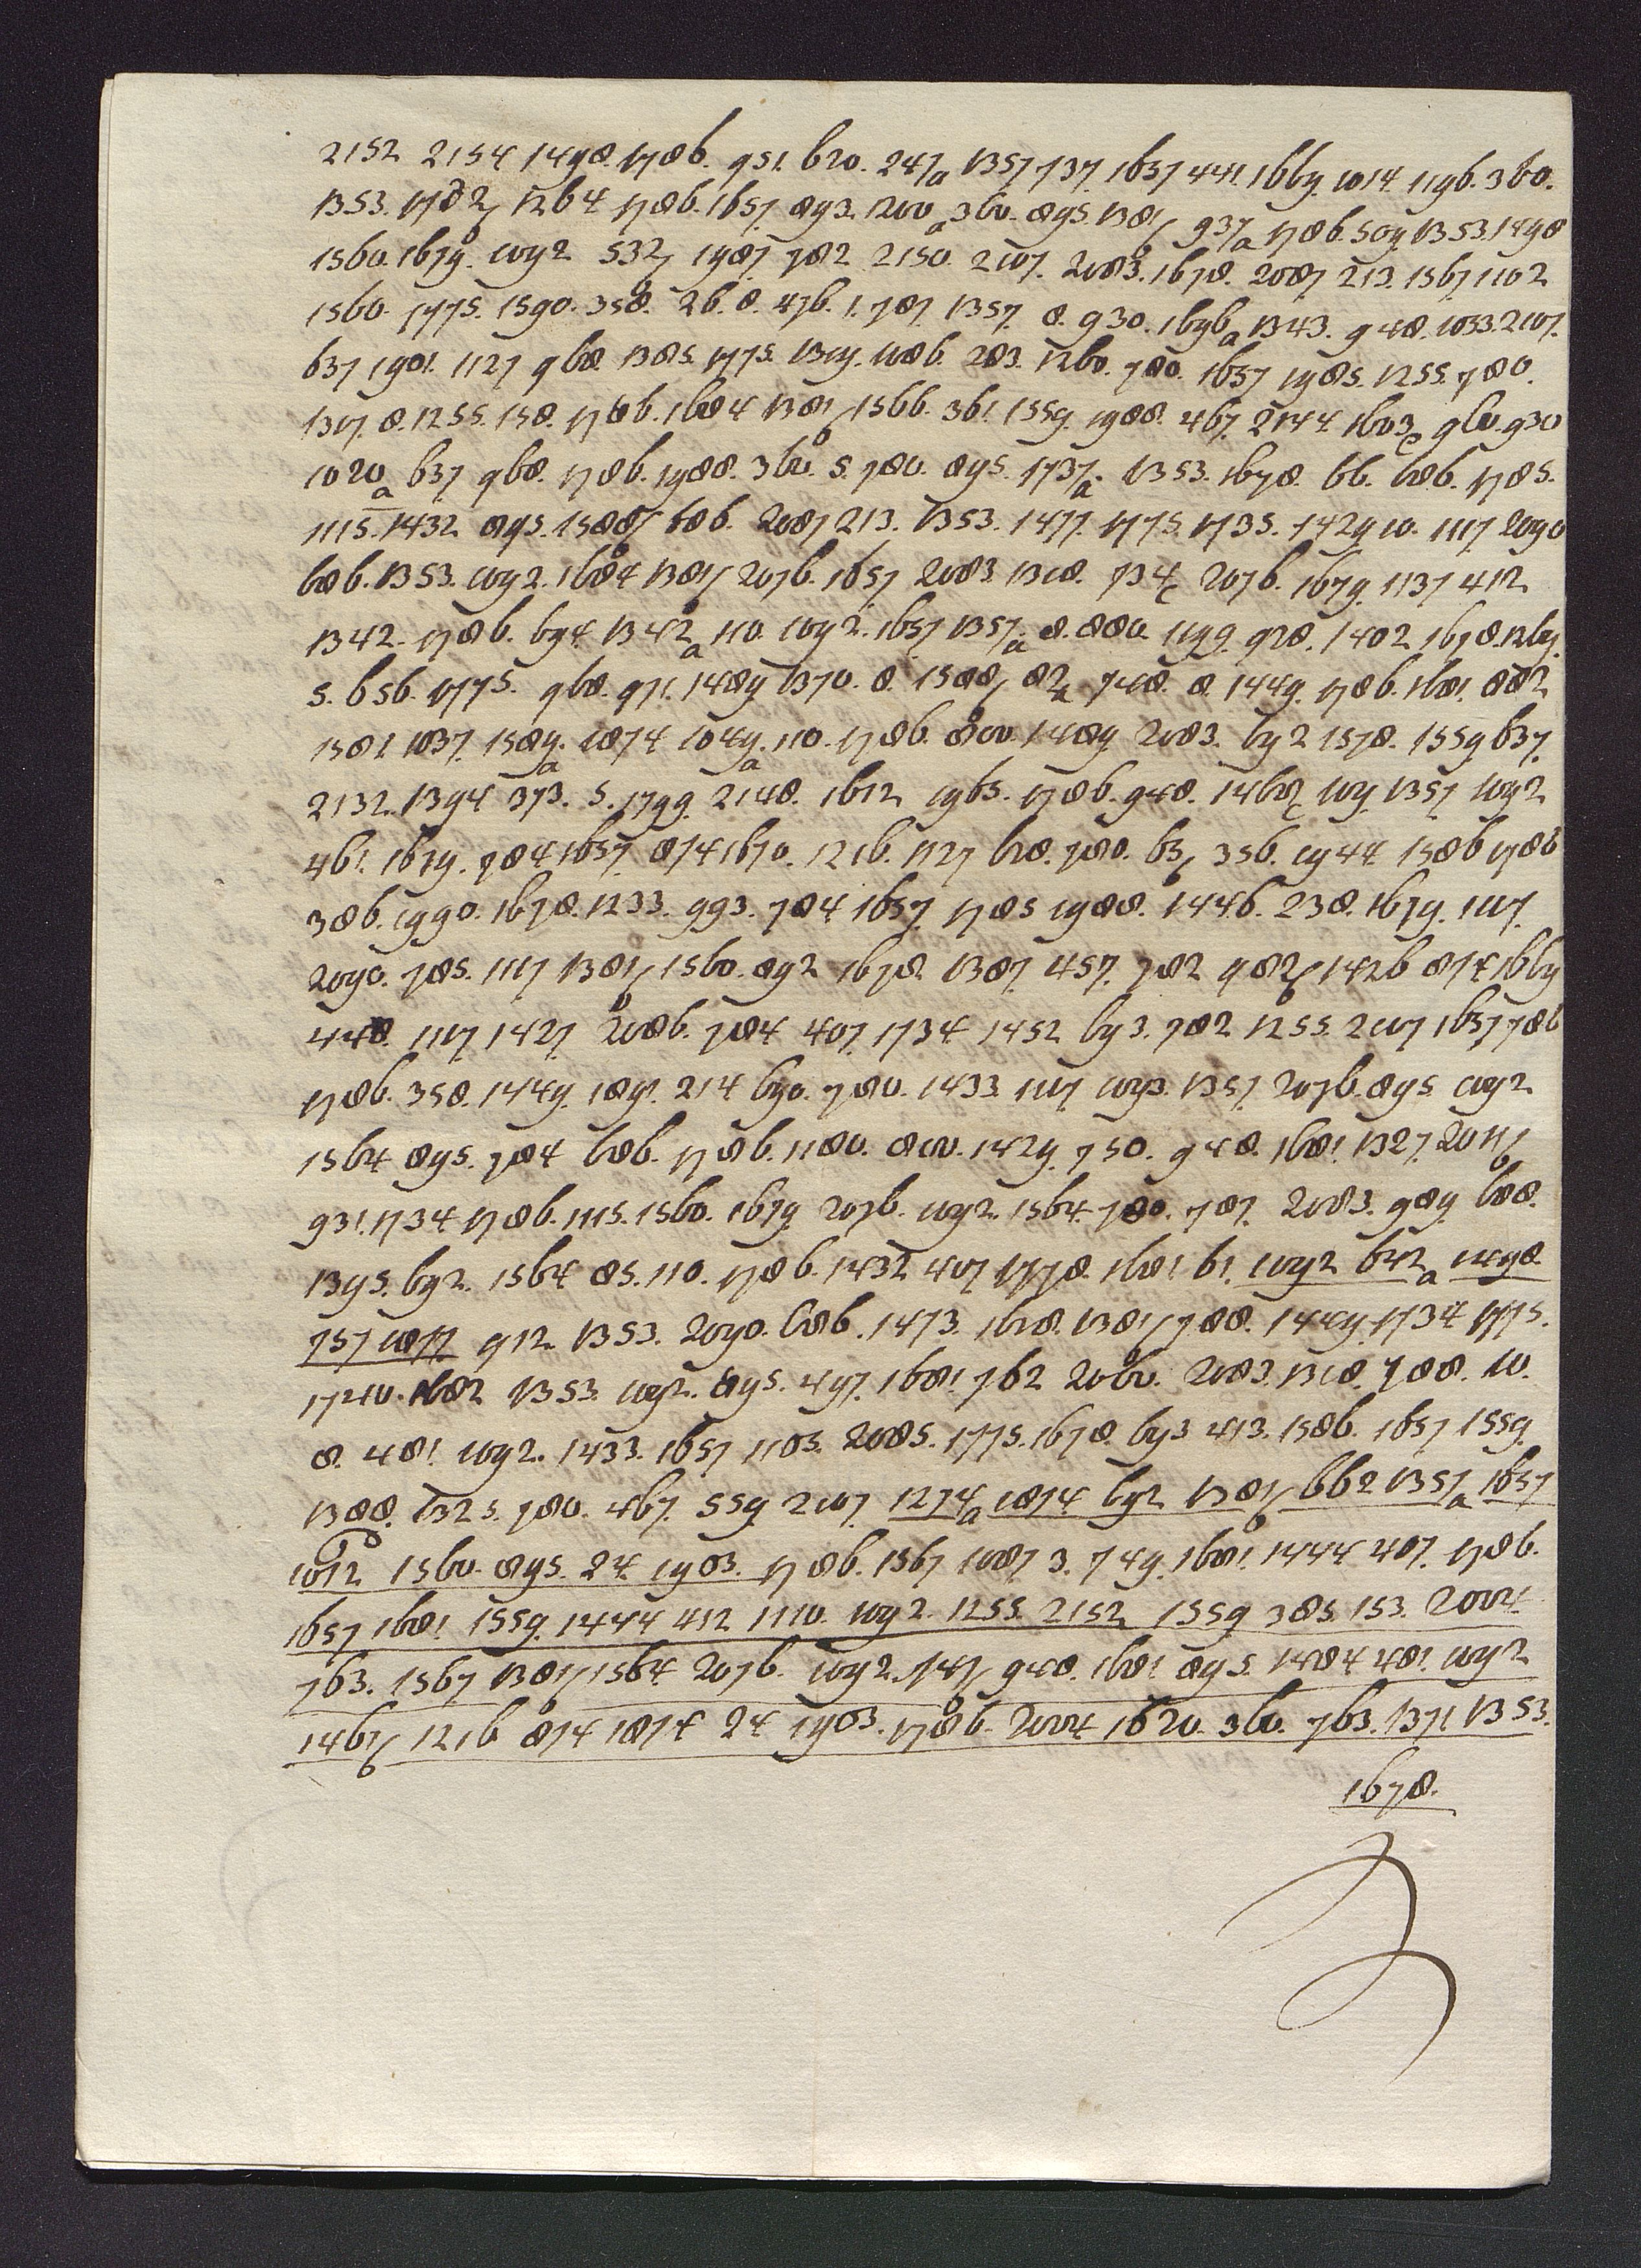 2152 2154 1498. 1786. 951. 620. 247a 1357 737. 1657 441. 1669. 1014. 1196. 360.
1353. 1782 1264 1786. 1657. 893. 1200a 360. 895. 1381 937a 1786. 509 1353. 1498
1560. 1679. 1092 532 1987 782 2150. 2107. 2083. 1678. 2087 213. 1567 1102
1560. 1775. 1590. 358. 26. 8. 476. 1. 787. 1357. 8. 930. 1696a 1343. 948. 1033. 2107.
637 1901. 1127 968. 1385. 1775. 1319. 1086. 283. 1260. 780. 1657 1985. 1255. 780.
1317. 8. 1255. 158. 1786. 1604 1381 1566. 361. 1559. 1988. 467. 2144 1603c 960. 930
1020a 637 968. 1786. 1988. 360. 5. 780. 895. 1737a. 1353. 1678. 66. 686. 1785.
1115. 1432 895. 1588 686. 2087 213. 1353. 1477. 1775. 1735. 1429 10. 1117 2090
686. 1353. 1092. 1684 1381 2076. 1657 2083. 1318. 734c 2076. 1679. 1137 412
1342. 1786. 694 1342a 110. 1092. 1657 1357a 8. 880. 1199. 928. 1402 1678. 1269.
5. 656. 1775. 968. 971. 1489 1370. 8. 1588 82a 748. 8. 1449. 1786. 1681. 882
1581. 1037. 1589a. 1874 1049a. 110. 1786. 800. 1489 2083. 692 1578. 1559 637.
2132. 1394 373. 5. 1799. 2148. 1612 1965. 1786. 948. 1460c 109 1357 1092
461. 1679. 784 1657. 874 1670. 1216. 1127 628. 780. 63 356. 1944 1586 1786
386. 1990. 1678. 1233. 993. 784 1657. 1785 1988. 1446. 238. 1679. 1117.
2090. 785. 1117 1381 1560. 892 1678. 1387. 457. 782 982 1426 874 1669
448. 1117 1427 2086. 784 407. 1734 1452 693. 782 1255. 2107 1657 786
1786. 358. 1449. 1891. 214 690. 780. 1433 1117 1093. 1357. 2076. 895 1092
1564 895. 784 686. 1786. 1180. 800. 1429. 750. 948. 1681. 1327. 2011b
931. 1734 1786. 1115. 1560. 1679 2076. 1092. 1564. 780. 787. 2083. 989. 688.
1395. 692. 1564 85. 110. 1786. 1432 407 1778. 1681 61. 1092 642a 1498.
757 1877 912 1353. 2090. 686. 1473. 1628. 1381 788. 1449. 1734 1775.
1740. 1682 1353 1092. 895. 497. 1681. 762 2060. 2083. 1318. 788. 10.
8. 481. 1092. 1433. 1657 1103. 2085. 1775. 1678. 693 413. 1586. 1657 1559.
1388. 1325. 780. 467. 559 2107. 1274a 1874 692 1381b 662 1357a 1657
1012 1560. 895. 24. 1903. 1786. 1567 1087 3. 749. 1681. 1444 407. 1786.
1657 1681 1559. 1444 412 1110. 1092. 1255. 2152 1559 385. 153. 2004.
763. 1567 1381 1564 2076. 1092. 1741 948. 1681 895. 1484 481 1092
1461b 1216 874 1874 24 1903. 1786. 2004 1620. 360. 763. 1371 1353.
1678.